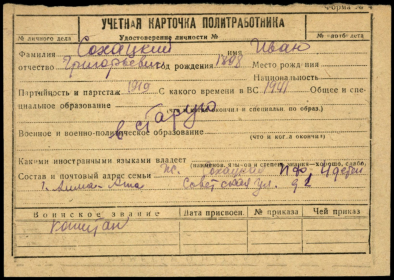 Форма №
УЧЕТНАЯ КАРТОЧКА ПОЛИТРАБОТНИКА
№ личного дела Удостоверение личности № № парт-дела
Фамилия Сохацкий имя Иван
отчество Григорьевич год рождения 1898 Место рождения
Национальность
Партийность и партстаж 1919 С какого времени в ВС. 1941 Общее и специальное
образование
(что и когда окончил и специальн. по образ.)
Военное и военно-политическое образование в старую
(что и когда окончил)
Какими иностранными языками владеет
(наименов. языков и степень знания—хорошо, слабо)
Состав и почтовый адрес семьи Сохацкая
г. Алма-Ата Советская ул. д
Воинское звание Дата присвоен. № приказа Чей приказ
Капитан